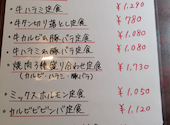 ・牛ハラミ定食 ¥1,290
・牛タン切り落とし定食 ¥780
・牛カルビ&豚バラ定食 ¥1,080
・牛ハラミ&豚バラ定食 ¥1,080
・焼肉3種盛り合わせ定食 ¥1,730
(カルビ・ハラミ・豚バラ)
・ミックスホルモン定食 ¥1,050
・カルビビビンバ定食 ¥1,120